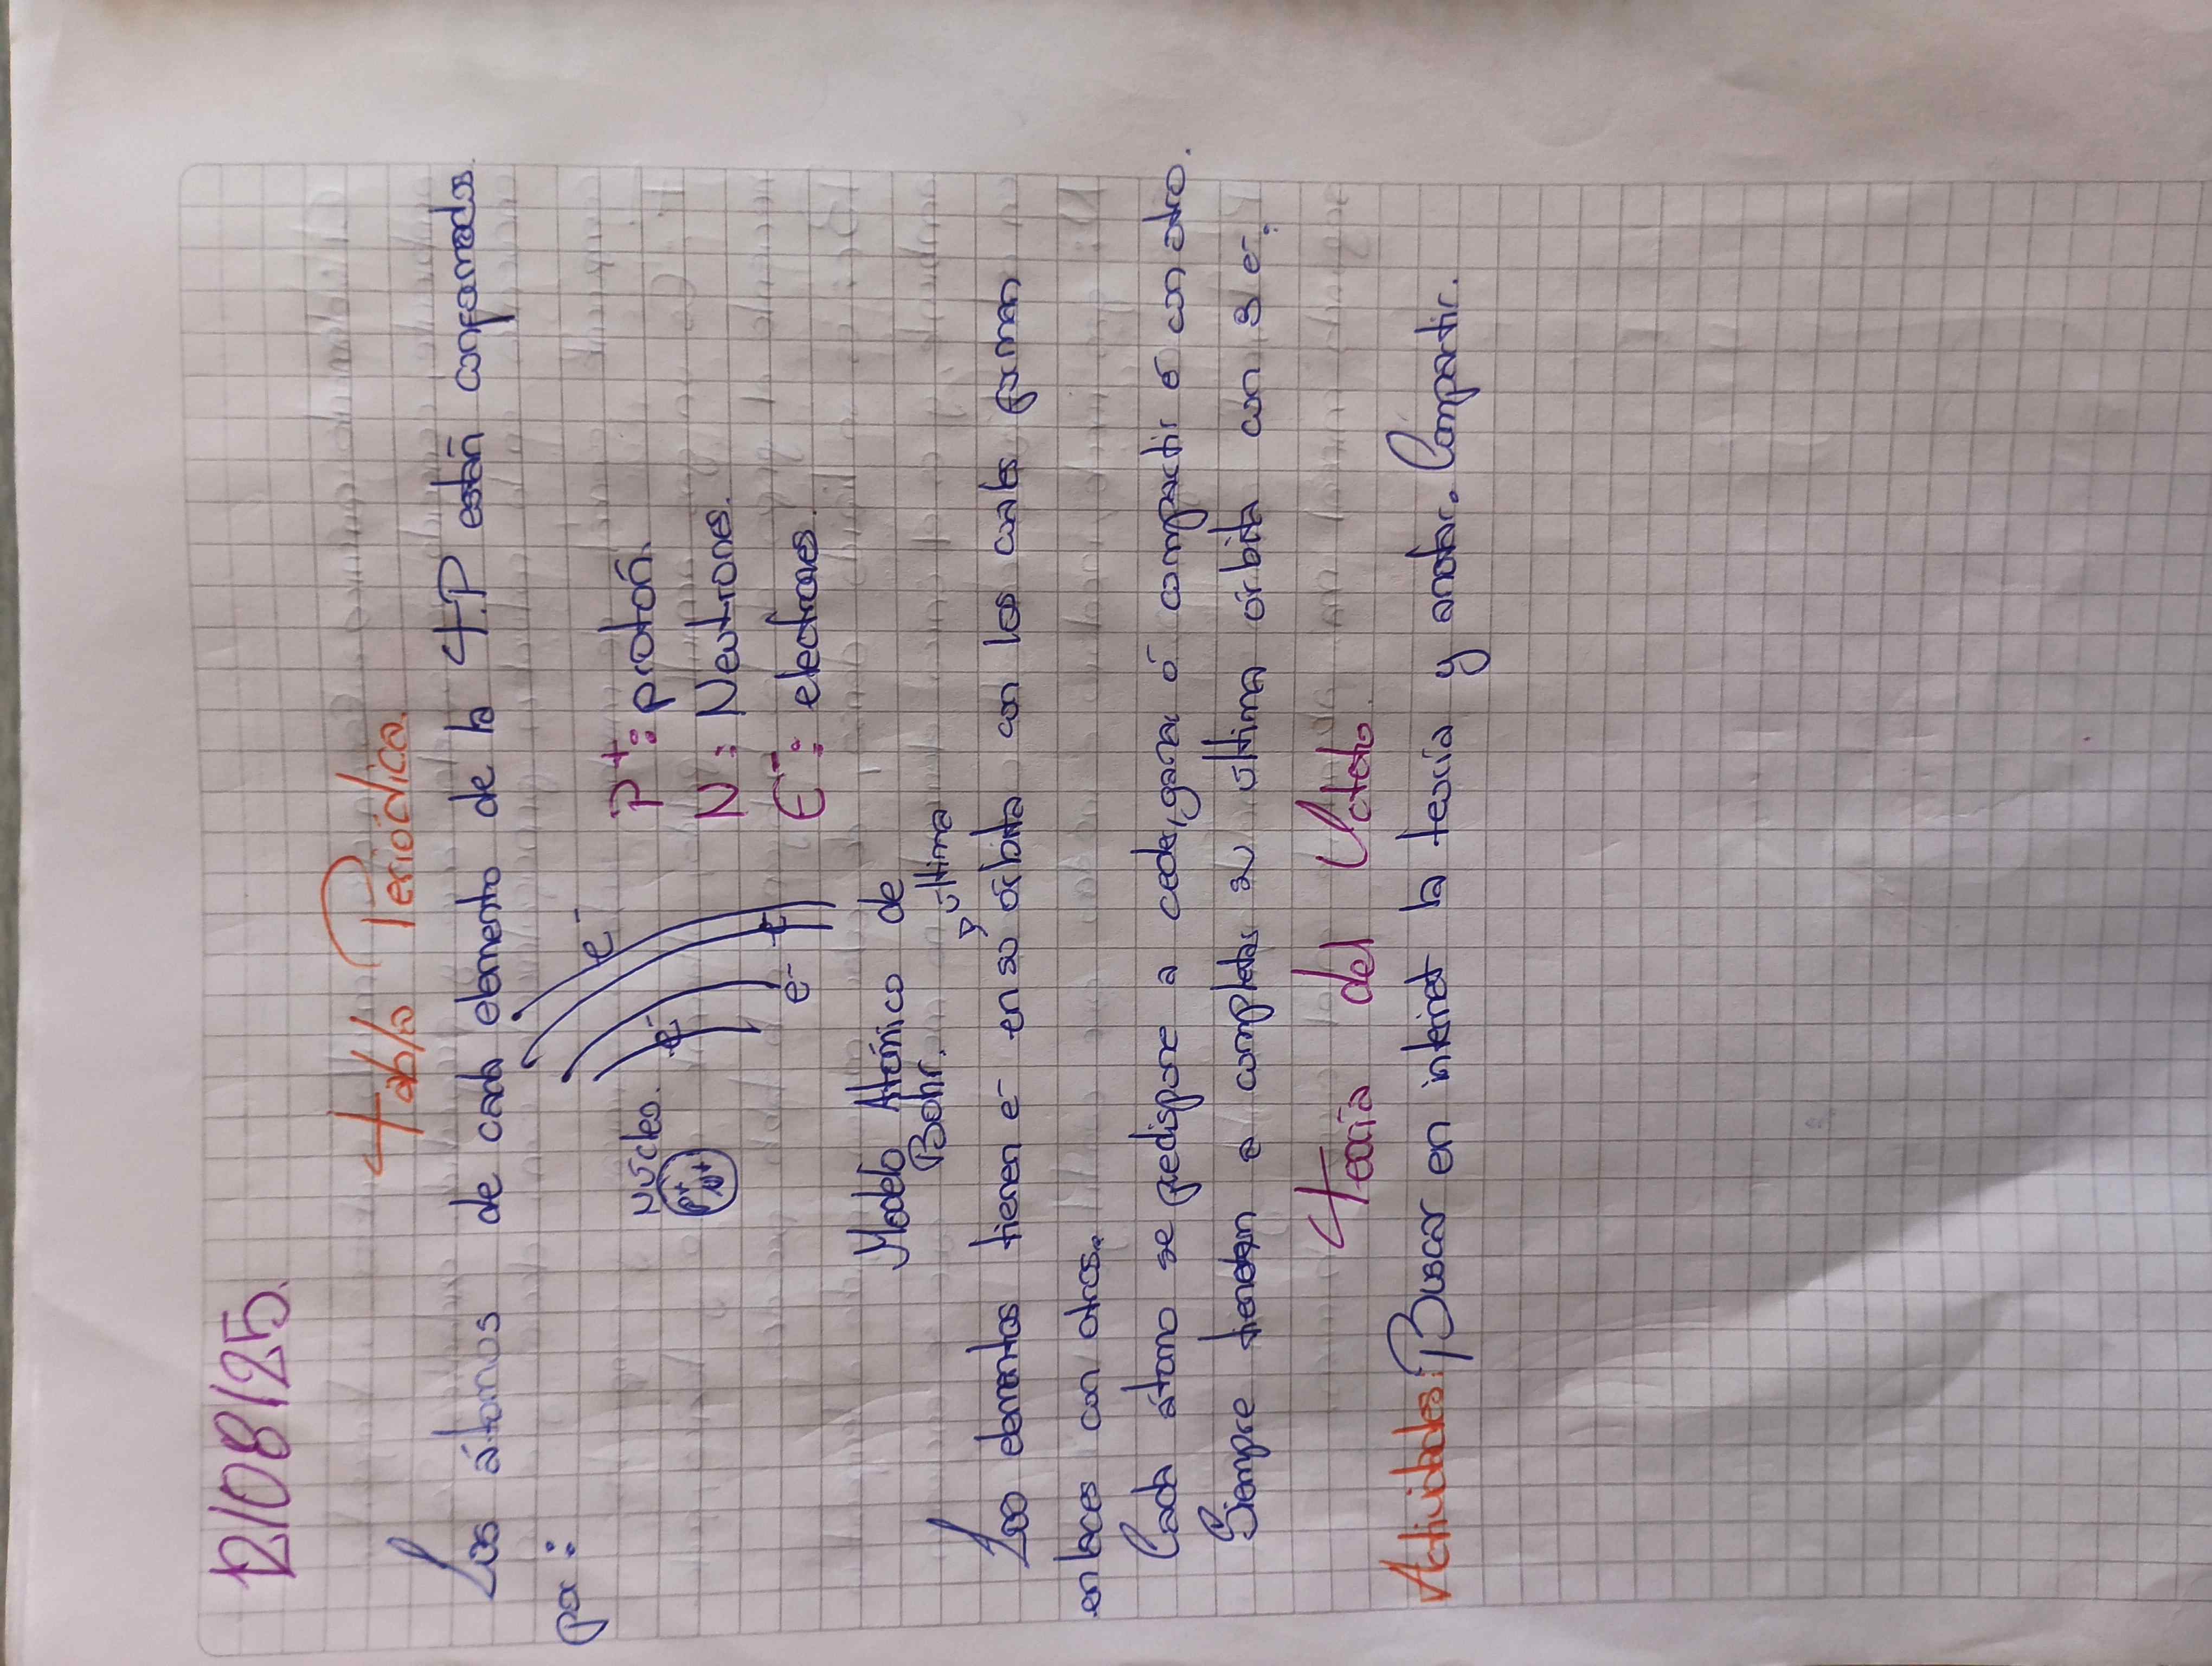 12/08/25.
Tabla Periódica.
Los átomos de cada elemento de la T.P están conformados
por:
Núcleo.
P+
N+
e-
e-
e-
e-
P+: protón.
N: Neutrones.
E-: electrones.
Modelo Atómico de
Bohr.
y última
Los elementos tienen e- en su órbita con los cuales forman
enlaces con otros.
Cada átomo se predispone a ceder, ganar ó compartir é con otro.
Siempre tienden a completar su última órbita con 8 e-.
Teoría del Octeto.
Actividades: Buscar en internet la teoría y anotar. Compartir.